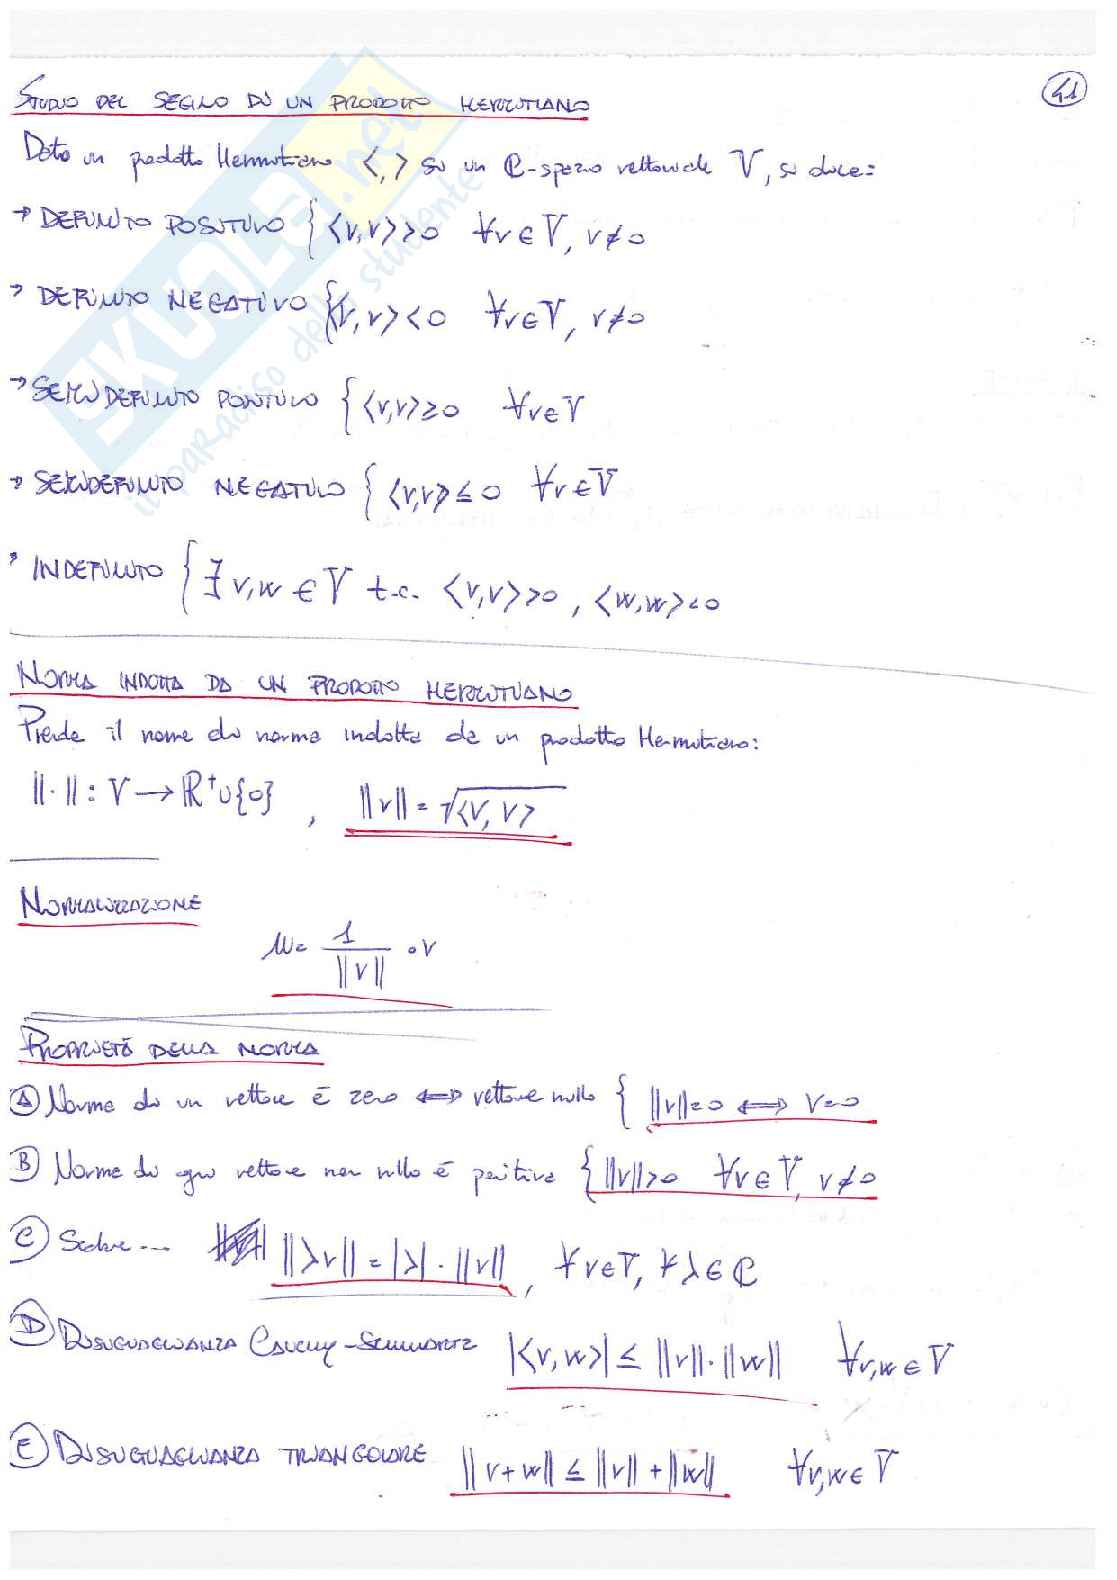 41
STUDIO DEL SEGNO DI UN PRODOTTO HERMITIANO
Dato un prodotto Hermitiano <,> su un ℂ-spazio vettoriale V, si dice:
→ DEFINITO POSITIVO { <v,v> >0 ∀v∈V, v≠0
→ DEFINITO NEGATIVO { <v,v> <0 ∀v∈V, v≠0
→ SEMIDEFINITO POSITIVO { <v,v> ≥0 ∀v∈V
→ SEMIDEFINITO NEGATIVO { <v,v> ≤0 ∀v∈V
→ INDEFINITO { ∃ v,w ∈ V t.c. <v,v> >0, <w,w> <0
NORMA INDOTTA DA UN PRODOTTO HERMITIANO
Prende il nome di norma indotta da un prodotto Hermitiano:
||·||: V → ℝ⁺∪{0}, ||v|| = √<v,v>
NORMALIZZAZIONE
u = 1/||v|| · v
PROPRIETÀ DELLA NORMA
A Norma di un vettore è zero ⟺ vettore nullo { ||v||=0 ⟺ v=0
B Norma di ogni vettore non nullo è positiva { ||v||>0 ∀v∈V, v≠0
C ||λv|| = |λ|·||v||, ∀v∈V, ∀λ∈ℂ
D DISUGUAGLIANZA CAUCHY-SCHWARTZ |<v,w>| ≤ ||v||·||w|| ∀v,w∈V
E DISUGUAGLIANZA TRIANGOLARE ||v+w|| ≤ ||v|| + ||w|| ∀v,w∈V
SKUOLA.net
il paradiso dello studente